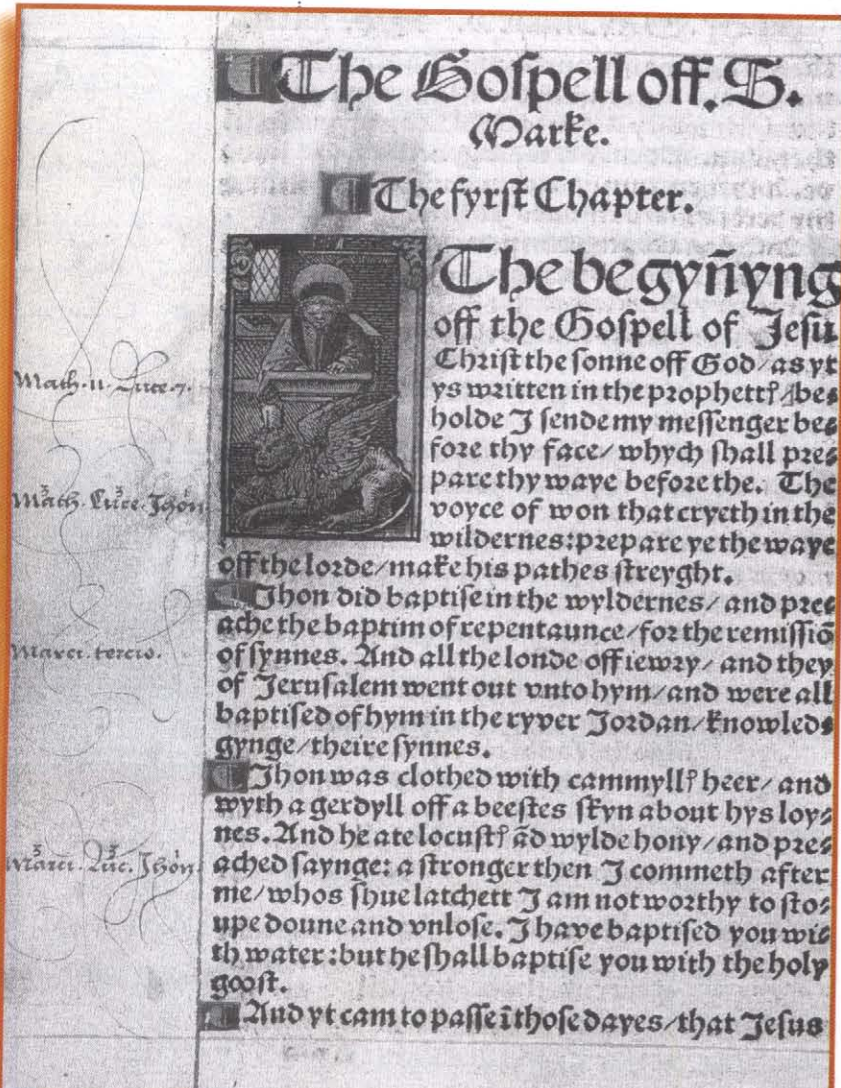 The Goſpell off. S.
Marke.
The fyrſt Chapter.
The begyñyng
off the Goſpell of Jeſu
Chriſt the ſonne off God/as yt
ys written in the prophettꝭ/be⸗
holde I ſende my meſſenger be⸗
fore thy face/whych ſhall pre⸗
pare thy waye before the. The
voyce of won that cryeth in the
wildernes:prepare ye the waye
off the lorde/make his pathes ſtreyght.
Jhon did baptiſe in the wyldernes/and pre⸗
ache the baptim of repentaunce/for the remiſſiō
of ſynnes. And all the londe off iewry/and they
of Jeruſalem went out vnto hym/and were all
baptiſed of hym in the ryver Jordan/knowled⸗
gynge/theire ſynnes.
Jhon was clothed with cammyllꝭ heer/and
wyth a gerdyll off a beeſtes ſkyn about hys loy⸗
nes. And he ate locuſtꝭ ād wylde hony/and pre⸗
ached ſaynge: a ſtronger then I commeth after
me/whos ſhue latchett I am not worthy to ſto⸗
upe doune and vnloſe. I have baptiſed you wi⸗
th water:but he ſhall baptiſe you with the holy
gooſt.
And yt cam to paſſe ī thoſe dayes/that Jeſus
Math. 11. Luce. 7.
Math. 3 Luce. 3 Jhon 1
Marci. tercio.
Marci. 3 Luc. 3 Jhon. 1